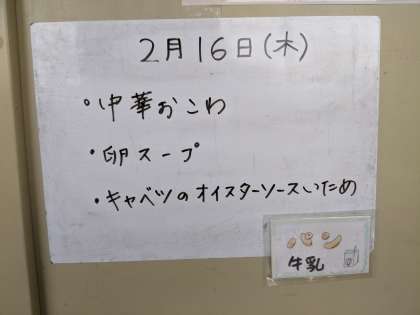 2月16日(木)
・中華おこわ
・卵スープ
・キャベツのオイスターソースいため
パン
牛乳